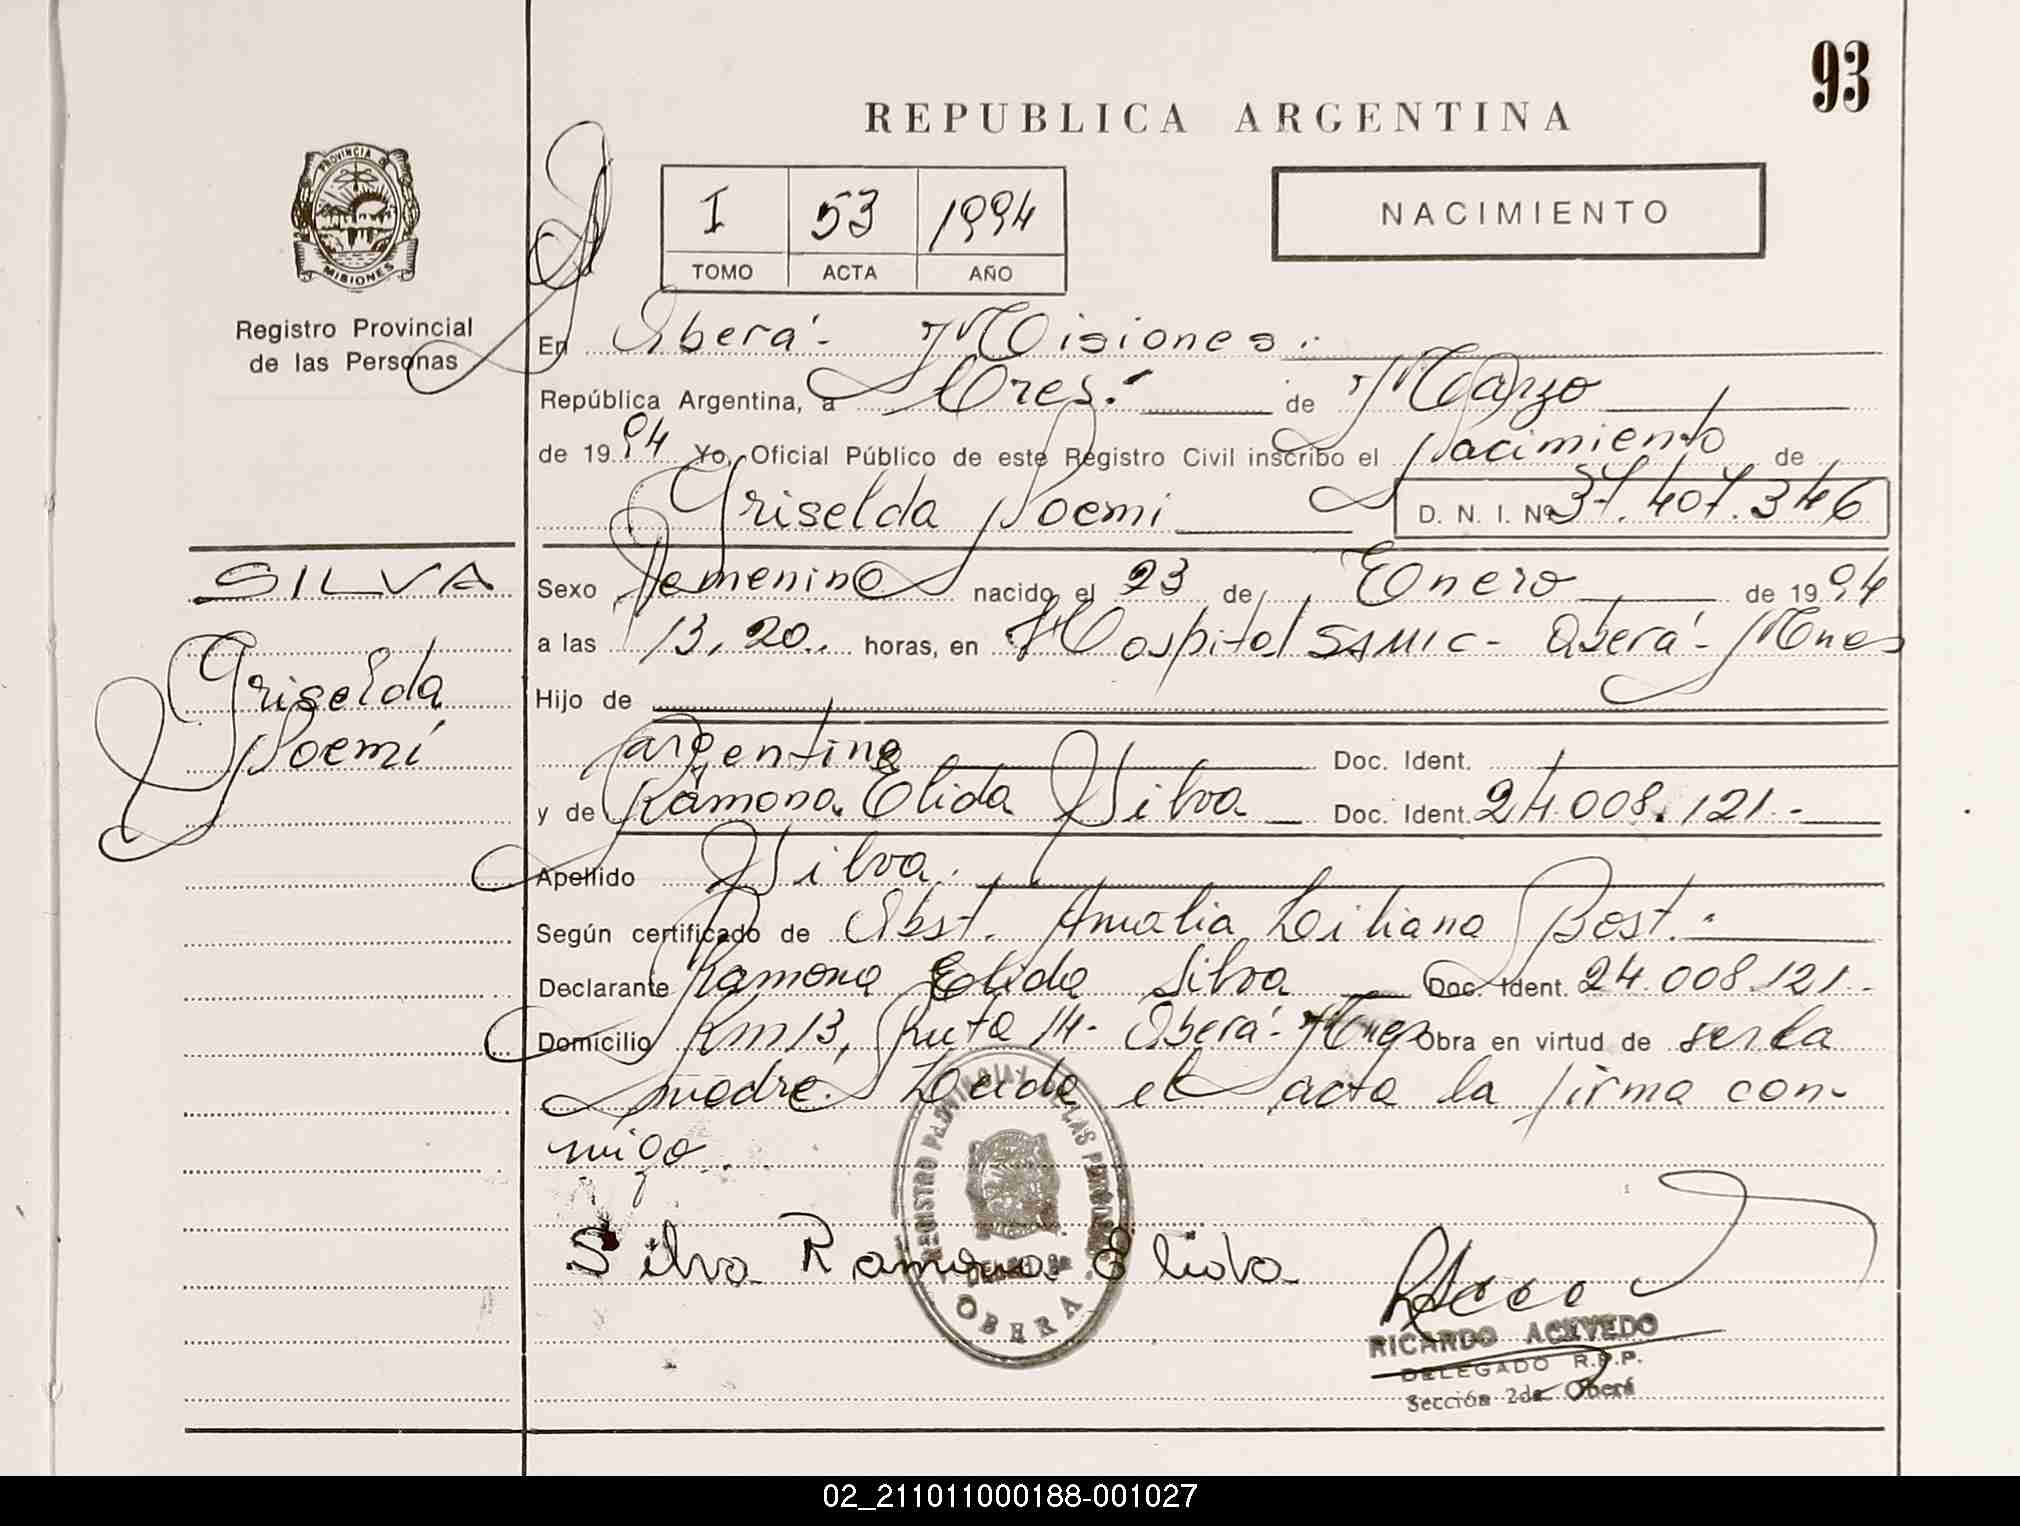 93
REPUBLICA ARGENTINA
PROVINCIA DE
MISIONES
Registro Provincial
de las Personas
I 53 1994
TOMO ACTA AÑO
NACIMIENTO
En Oberá - Misiones.
República Argentina, a Tres. de Marzo
de 1994 Yo, Oficial Público de este Registro Civil inscribo el Nacimiento de
Griselda Noemi D. N. I. Nº 37.407.346
SILVA
Griselda
Noemí
Sexo Femenino nacido el 23 de Enero de 1994
a las 13,20.. horas, en Hospital SAMIC - Oberá - Mnes
Hijo de
argentina Doc. Ident.
y de Ramona Elida Silva Doc. Ident. 24.008.121.-
Apellido Silva.
Según certificado de Obst. Amalia Liliana Bost.-
Declarante Ramona Elida Silva Doc. Ident. 24.008.121.-
Domicilio Km 13, Ruta 14 - Oberá - Mnes Obra en virtud de ser la
madre. Leida el acta la firma con-
migo.
Silva Ramona Elida
REGISTRO PROVINCIAL DE LAS PERSONAS
OBERA
RICARDO ACEVEDO
DELEGADO R.P.P.
Sección 2da Oberá
02_211011000188-001027